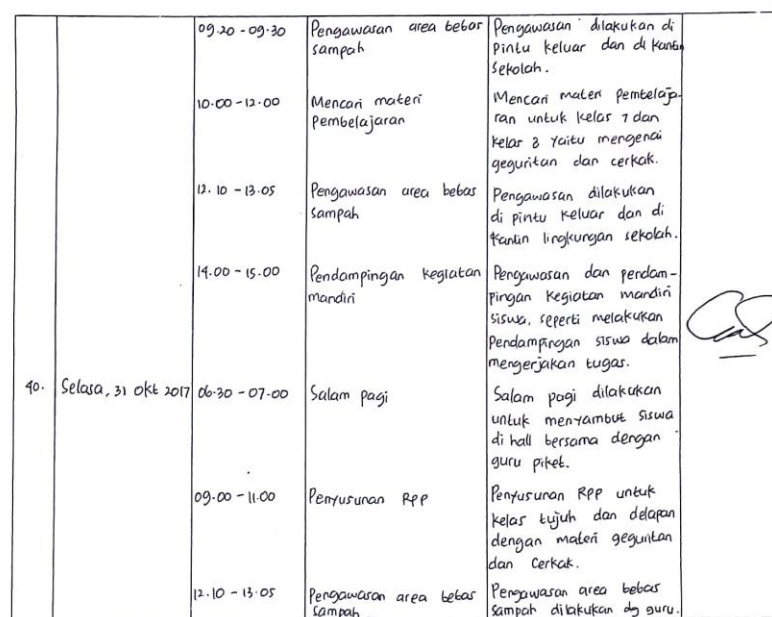 09.20 - 09.30 Pengawasan area bebas Pengawasan dilakukan di
sampah Pintu keluar dan di kantin
sekolah.
10.00 - 12.00 Mencari materi Mencari materi pembelaja-
pembelajaran ran untuk kelas 7 dan
kelas 8 yaitu mengenai
geguritan dan cerkak.
12.10 - 13.05 Pengawasan area bebas Pengawasan dilakukan
sampah di pintu keluar dan di
kantin lingkungan sekolah.
14.00 - 15.00 Pendampingan kegiatan Pengawasan dan pendam-
mandiri pingan kegiatan mandiri
siswa, seperti melakukan
Pendampingan siswa dalam
mengerjakan tugas.
40. Selasa, 31 Okt 2017 06.30 - 07.00 Salam pagi Salam pagi dilakukan
untuk menyambut siswa
di hall bersama dengan
guru piket.
09.00 - 11.00 Penyusunan RPP Penyusunan RPP untuk
kelas tujuh dan delapan
dengan materi geguritan
dan Cerkak.
12.10 - 13.05 Pengawasan area bebas Pengawasan area bebas
sampah sampah dilakukan dg guru.